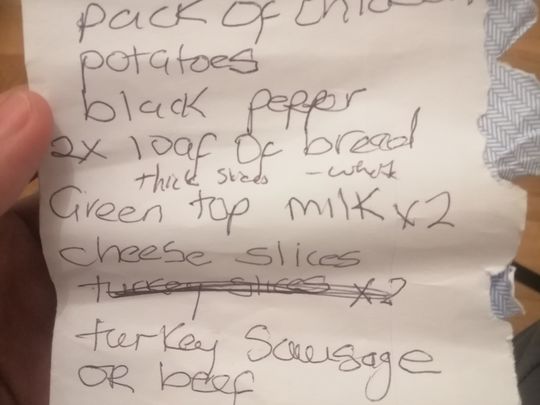 pack of chicken
potatoes
black pepper
2x loaf of bread
thick slices - white
Green top milk x2
cheese slices
turkey slices x2
turkey sausage
OR beef